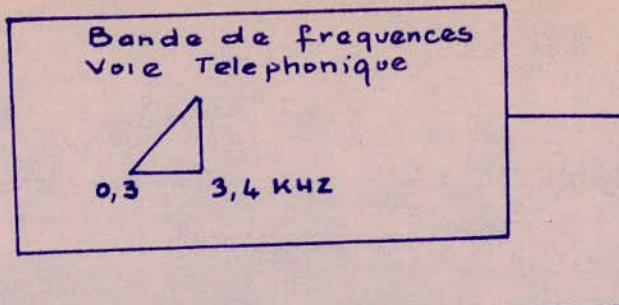 Bande de frequences
Voie Telephonique
0,3 3,4 KHZ